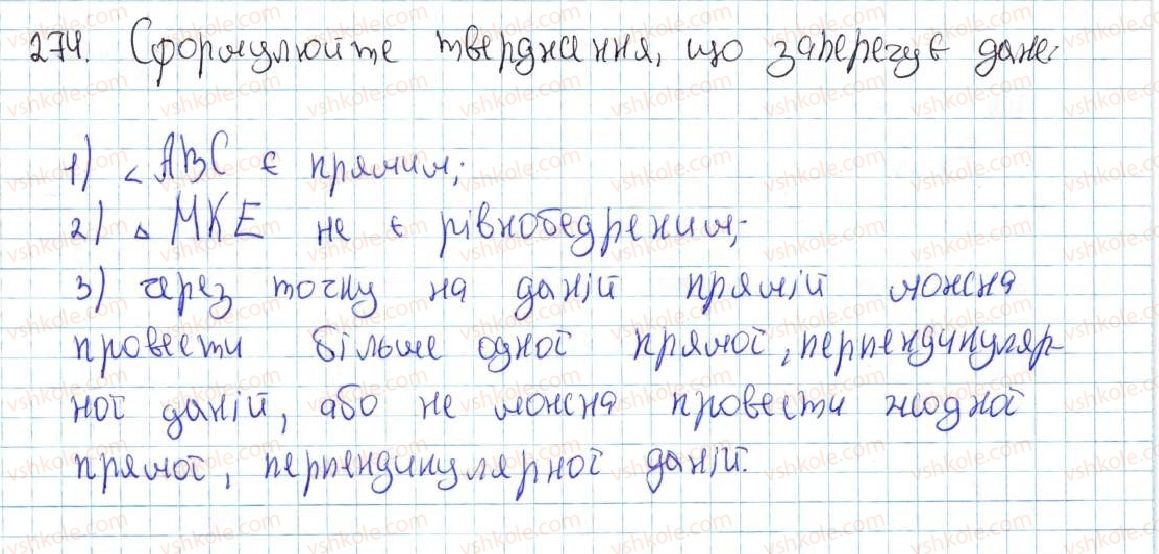 274. Сформулюйте твердження, що заперечує дане:
1) ∠ABC є прямим;
2) △MKE не є рівнобедреним;
3) через точку на даній прямій можна
провести більше одної прямої, перпендикуляр-
ної даній, або не можна провести жодної
прямої, перпендикулярної даній.
vshkole.com